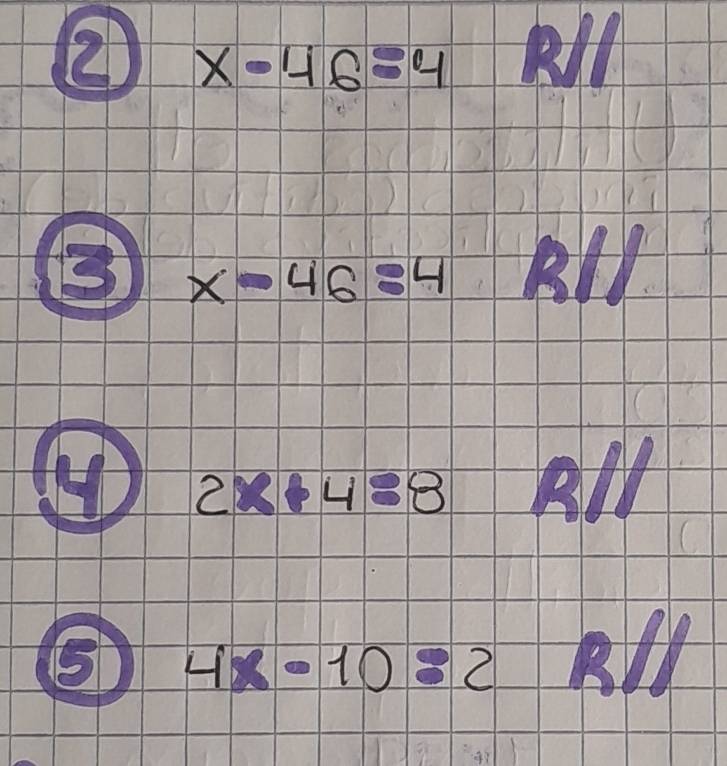 2 x-46=4 R//
3 x-46=4 R//
4 2x+4=8 R//
5 4x-10=2 R//